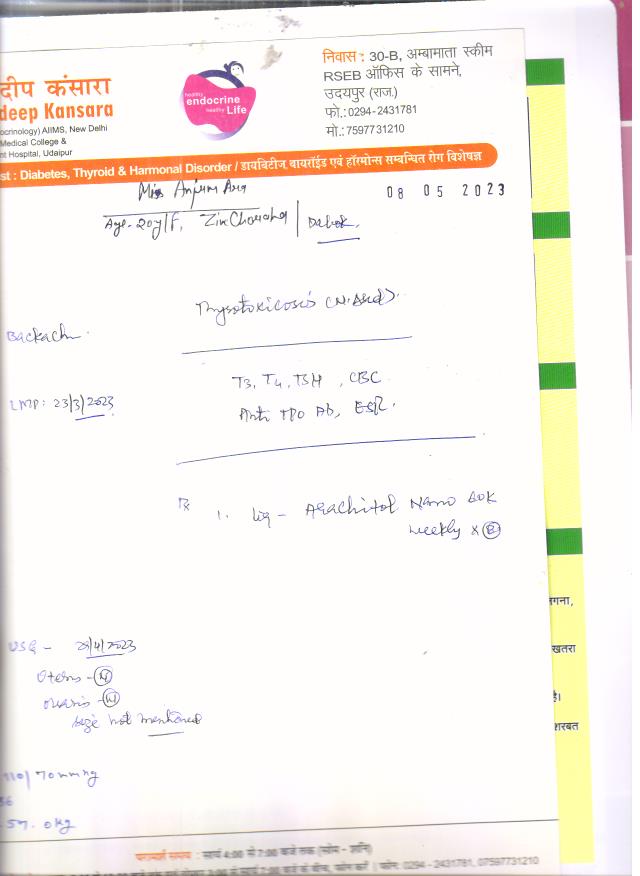 दीप कंसारा
deep Kansara
ocrinology) AIIMS, New Delhi
Medical College &
nt Hospital, Udaipur
healthy
endocrine
healthy Life
निवास : 30-B, अम्बामाता स्कीम
RSEB ऑफिस के सामने,
उदयपुर (राज.)
फो.: 0294-2431781
मो.: 7597731210
st : Diabetes, Thyroid & Harmonal Disorder / डायबिटीज, थायरॉईड एवं हॉरमोन्स सम्बन्धित रोग विशेषज्ञ
Miss Anjum Ara
08 05 2023
Age-20y/F, Zinc Choraha | Dabok.
Thyrotoxicosis
Backache
T3, T4, TSH , CBC
LMP: 23/3/2023
Anti TPO Ab, ESR.
Rx
1. Liq - Arachitol Nano 60K
weekly x 8
USG - /4/2023
Uterus - N
ovaries - N
size not mentioned
110/70 mmHg
86
57.0kg
गना,
खतरा
है।
शरबत
परामर्श समय : सायं 4:00 से 7:00 बजे तक (सोम - शनि)
फोन: 0294 - 2431781, 07597731210